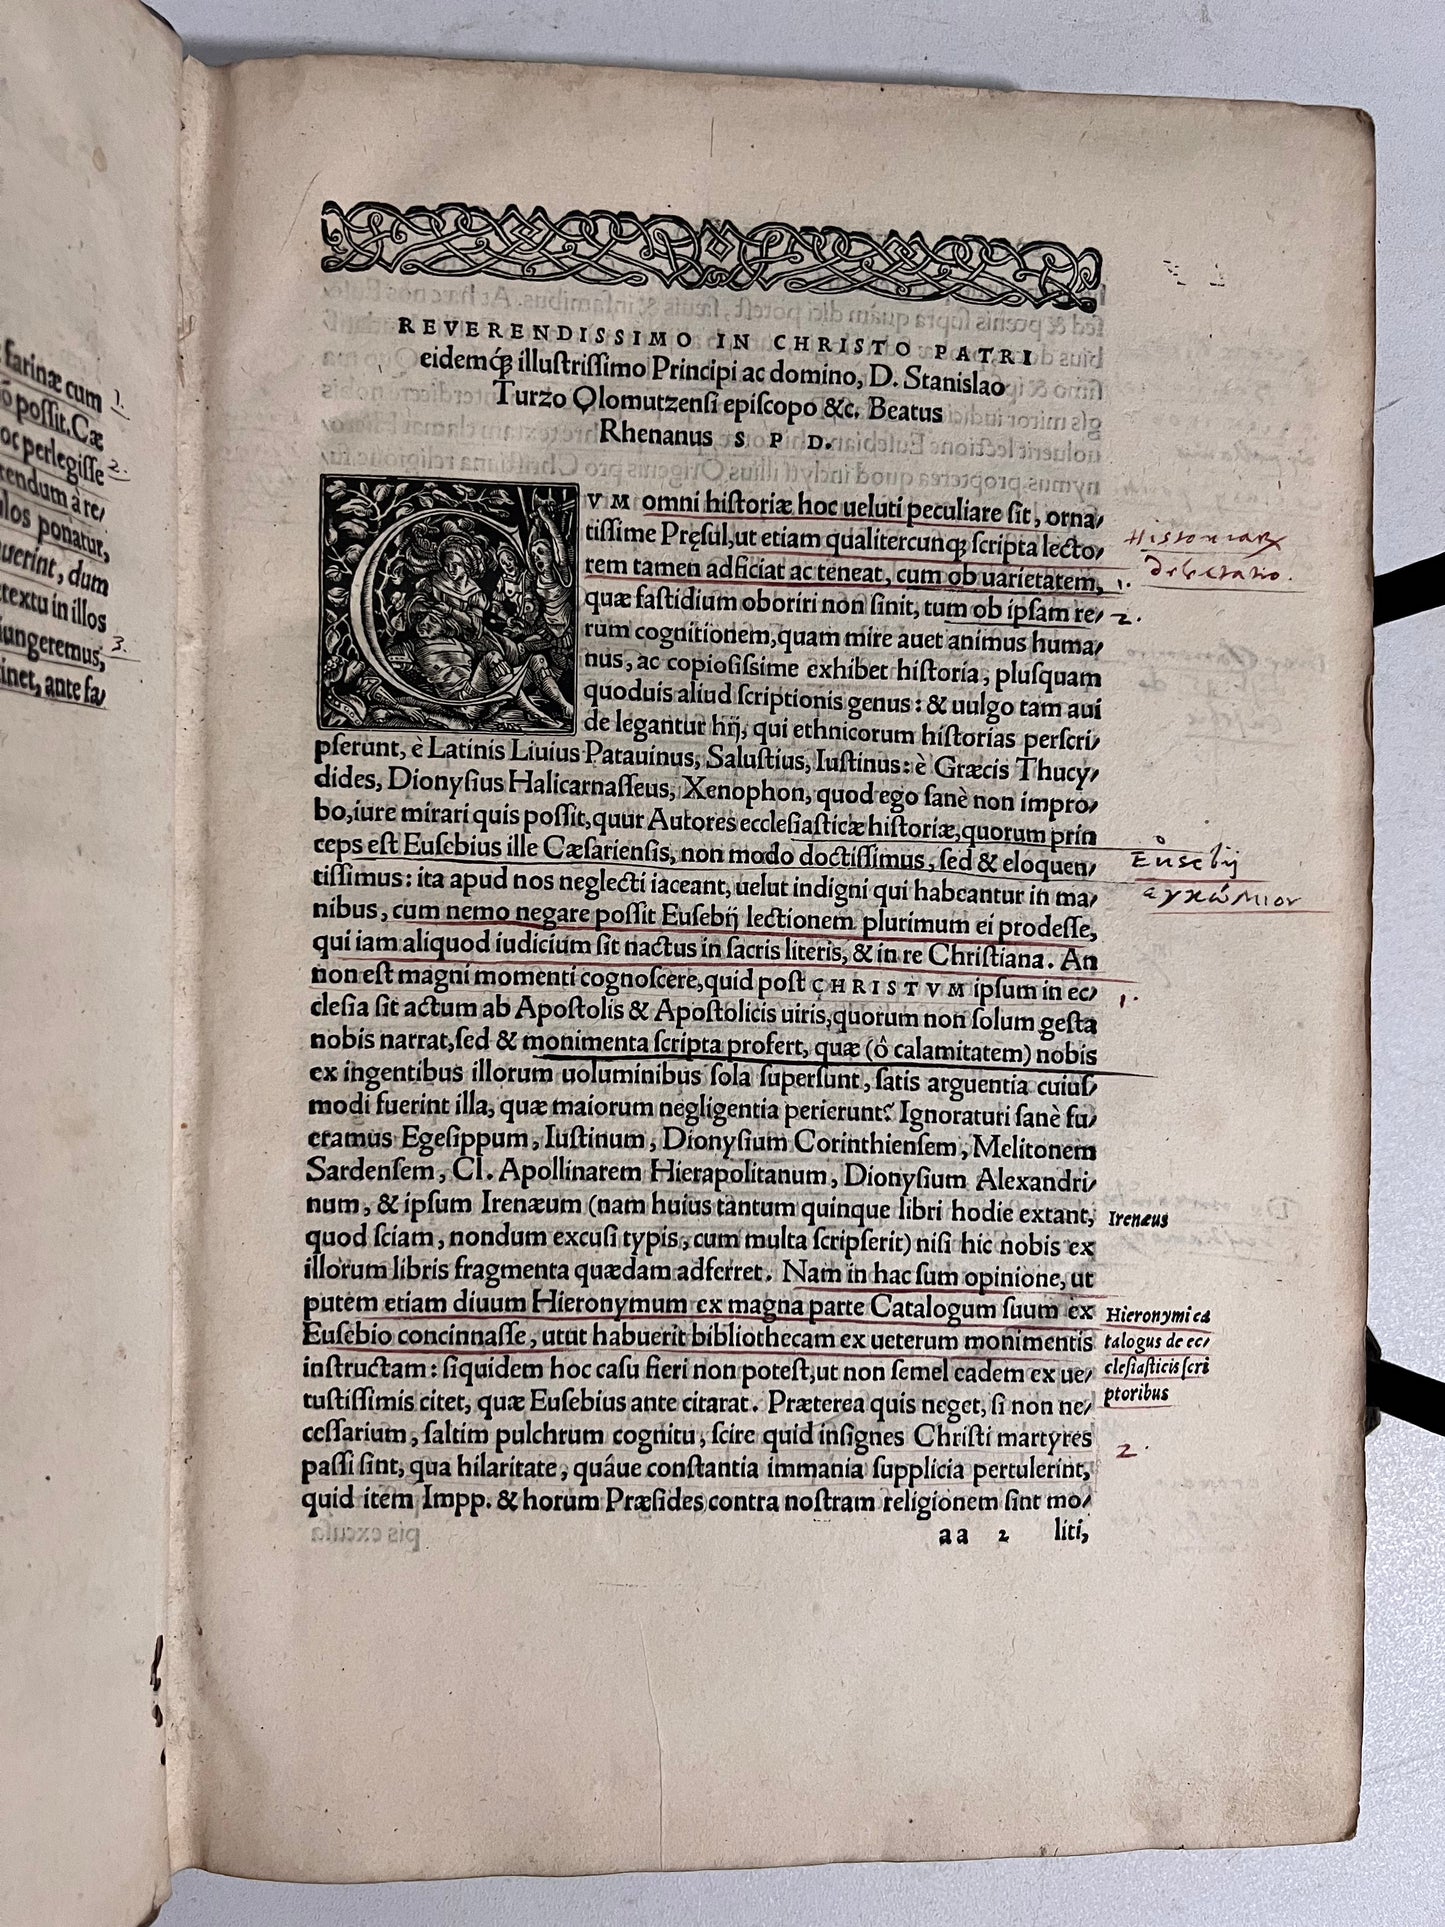 farinæ cum
possit. Cæ
oc perlegisse
tendum à re
los ponatur,
uerint, dum
textu in illos
iungeremus,
inet, ante fa/
1.
2.
3.
REVERENDISSIMO IN CHRISTO PATRI
eidemq́ꝫ illustrissimo Principi ac domino, D. Stanislao
Turzo Olomutzensi episcopo &c. Beatus
Rhenanus S P D.
CVM omni historiæ hoc ueluti peculiare sit, orna/
tissime Pręsul, ut etiam qualitercunqꝫ scripta lecto/
rem tamen adficiat ac teneat, cum ob uarietatem,
quæ fastidium oboriri non sinit, tum ob ipsam re/
rum cognitionem, quam mire auet animus huma/
nus, ac copiosissime exhibet historia, plusquam
quoduis aliud scriptionis genus: & uulgo tam aui
de legantur hij, qui ethnicorum historias perscri/
pserunt, è Latinis Liuius Patauinus, Salustius, Iustinus: è Græcis Thucy/
dides, Dionysius Halicarnasseus, Xenophon, quod ego sanè non impro/
bo, iure mirari quis possit, quur Autores ecclesiasticæ historiæ, quorum prin
ceps est Eusebius ille Cæsariensis, non modo doctissimus, sed & eloquen/
tissimus: ita apud nos neglecti iaceant, uelut indigni qui habeantur in ma/
nibus, cum nemo negare possit Eusebij lectionem plurimum ei prodesse,
qui iam aliquod iudicium sit nactus in sacris literis, & in re Christiana. An
non est magni momenti cognoscere, quid post CHRISTVM ipsum in ec/
clesia sit actum ab Apostolis & Apostolicis uiris, quorum non solum gesta
nobis narrat, sed & monimenta scripta profert, quæ (ô calamitatem) nobis
ex ingentibus illorum uoluminibus sola supersunt, satis arguentia cuius/
modi fuerint illa, quæ maiorum negligentia perierunt? Ignoraturi sanè fu/
eramus Egesippum, Iustinum, Dionysium Corinthiensem, Melitonem
Sardensem, Cl. Apollinarem Hierapolitanum, Dionysium Alexandri/
num, & ipsum Irenæum (nam huius tantum quinque libri hodie extant,
quod sciam, nondum excusi typis, cum multa scripserit) nisi hic nobis ex
illorum libris fragmenta quædam adferret. Nam in hac sum opinione, ut
putem etiam diuum Hieronymum ex magna parte Catalogum suum ex
Eusebio concinnasse, utut habuerit bibliothecam ex ueterum monimentis
instructam: siquidem hoc casu fieri non potest, ut non semel eadem ex ue/
tustissimis citet, quæ Eusebius ante citarat. Præterea quis neget, si non ne/
cessarium, saltim pulchrum cognitu, scire quid insignes Christi martyres
passi sint, qua hilaritate, quâue constantia immania supplicia pertulerint,
quid item Impp. & horum Præsides contra nostram religionem sint mo/
aa 2 liti,
Historiarū
delectatio.
1.
2.
Eusebij
ἐγκώμιον
1.
Irenæus
Hieronymi ca
talogus de ec/
clesiasticis scri
ptoribus
2.